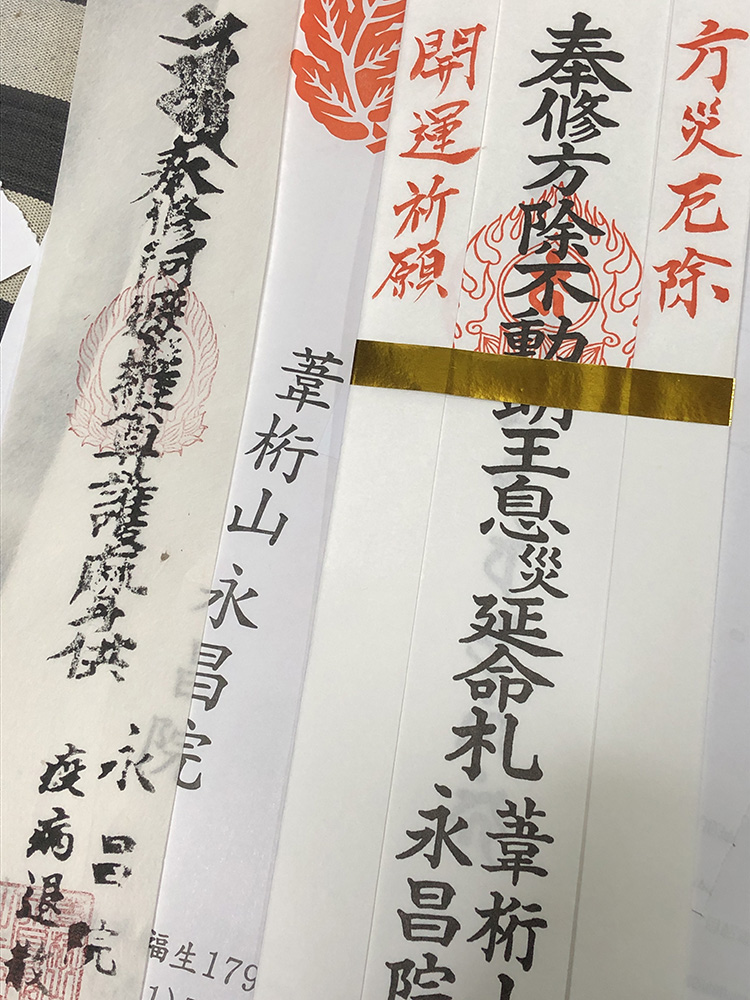 方災厄除
奉修方除不動明王息災延命札
開運祈願
葦桁山
永昌院
葦桁山 永昌院
福生179
奉修阿婆羅耳護摩供
永昌院
疫病退散